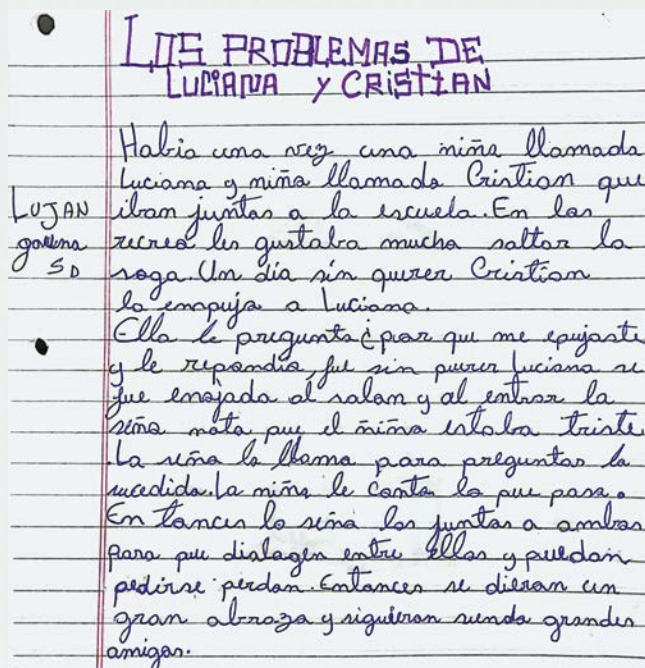 LOS PROBLEMAS DE
LUCIANA Y CRISTIAN
Habia una vez una niña llamada
Luciana y niño llamado Cristian que
LUJAN
iban juntos a la escuela. En los
galena
recreo les gustaba mucho saltar la
5D
soga. Un día sin querer Cristian
lo empuja a Luciana.
Ella le pregunta ¿por que me epujaste
y le repondio, fue sin puerer Luciana se
fue enojada al salon y al entrar la
seño nota pue el niña estaba triste
.La seño la llama para preguntar lo
sucedido. La niña le conta lo pue paso.
En tonces la seño los juntos a ambos
para pue dialogen entre ellos y puedan
pedirse perdon. Entonces se dieron un
gran abrazo y siguieron siendo grandes
amigos.